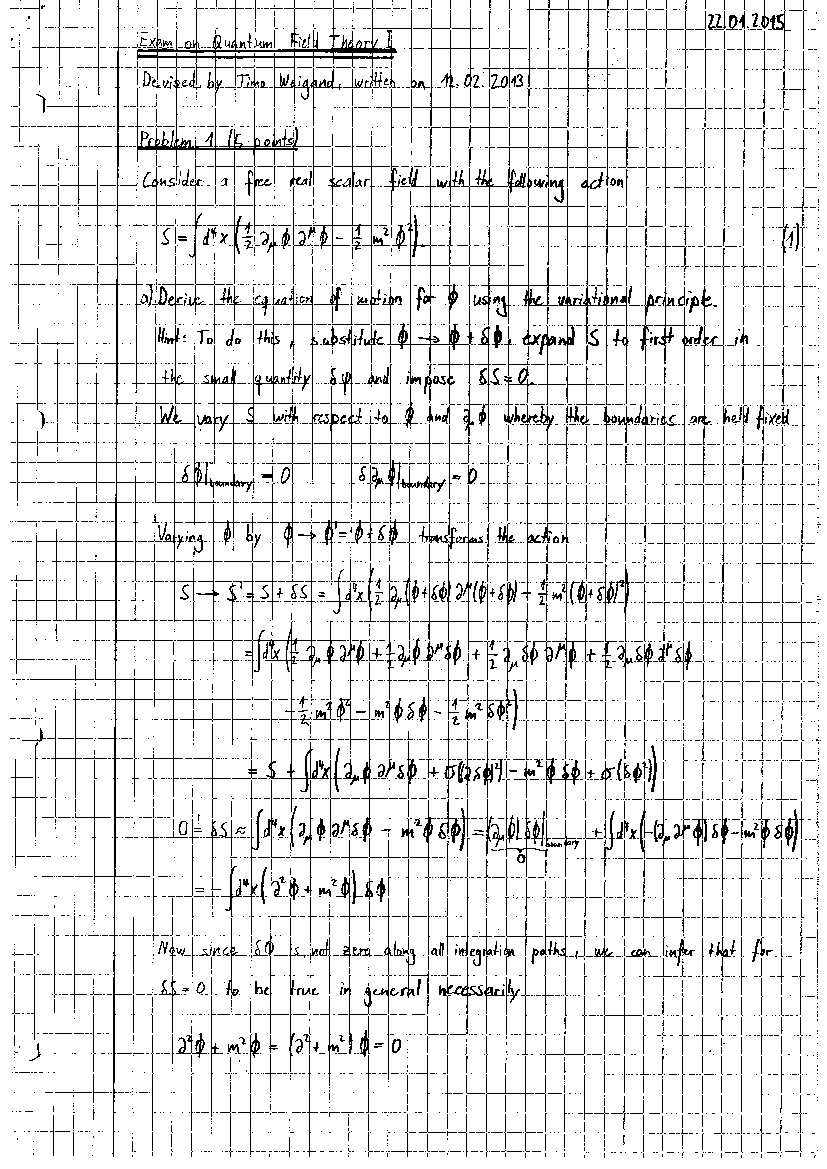 22.01.2015
Exam on Quantum Field Theory I
Devised by Timo Weigand, written on 12.02.2013
Problem 1 (15 points)
Consider a free real scalar field with the following action
S = ∫d⁴x (1/2 ∂_μ ϕ ∂^μ ϕ − 1/2 m² ϕ²). (1)
a) Derive the equation of motion for ϕ using the variational principle.
Hint: To do this, substitute ϕ → ϕ + δϕ, expand S to first order in
the small quantity δφ and impose δS = 0.
We vary S with respect to ϕ and ∂_μ ϕ whereby the boundaries are held fixed
δϕ|_boundary = 0 δ∂_μ ϕ|_boundary = 0
Varying ϕ by ϕ → ϕ' = ϕ + δϕ transforms the action
S → S' = S + δS = ∫d⁴x (1/2 ∂_μ(ϕ+δϕ) ∂^μ(ϕ+δϕ) − 1/2 m² (ϕ+δϕ)²)
= ∫d⁴x (1/2 ∂_μ ϕ ∂^μ ϕ + 1/2 ∂_μ ϕ ∂^μ δϕ + 1/2 ∂_μ δϕ ∂^μ ϕ + 1/2 ∂_μ δϕ ∂^μ δϕ
− 1/2 m² ϕ² − m² ϕ δϕ − 1/2 m² δϕ²)
= S + ∫d⁴x (∂_μ ϕ ∂^μ δϕ + σ((∂δϕ)²) − m² ϕ δϕ + σ(δϕ²))
0 = δS ≈ ∫d⁴x (∂_μ ϕ ∂^μ δϕ − m² ϕ δϕ) = (∂_μ ϕ) δϕ|_boundary + ∫d⁴x (−(∂_μ ∂^μ ϕ) δϕ − m² ϕ δϕ)
0
= − ∫d⁴x (∂² ϕ + m² ϕ) δϕ
Now since δϕ is not zero along all integration paths, we can infer that for
δS = 0 to be true in general necessarily
∂² ϕ + m² ϕ = (∂² + m²) ϕ = 0